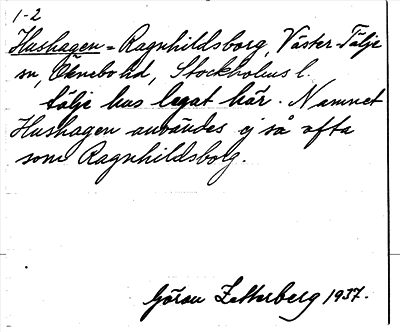 1-2
Hushagen = Ragnhildsborg, Väster-Tälje
sn, Öknebo hd, Stockholms l.
Tälje hus legat här. Namnet
Hushagen användes ej så ofta
som Ragnhildsborg.
Göran Zetterberg 1937.